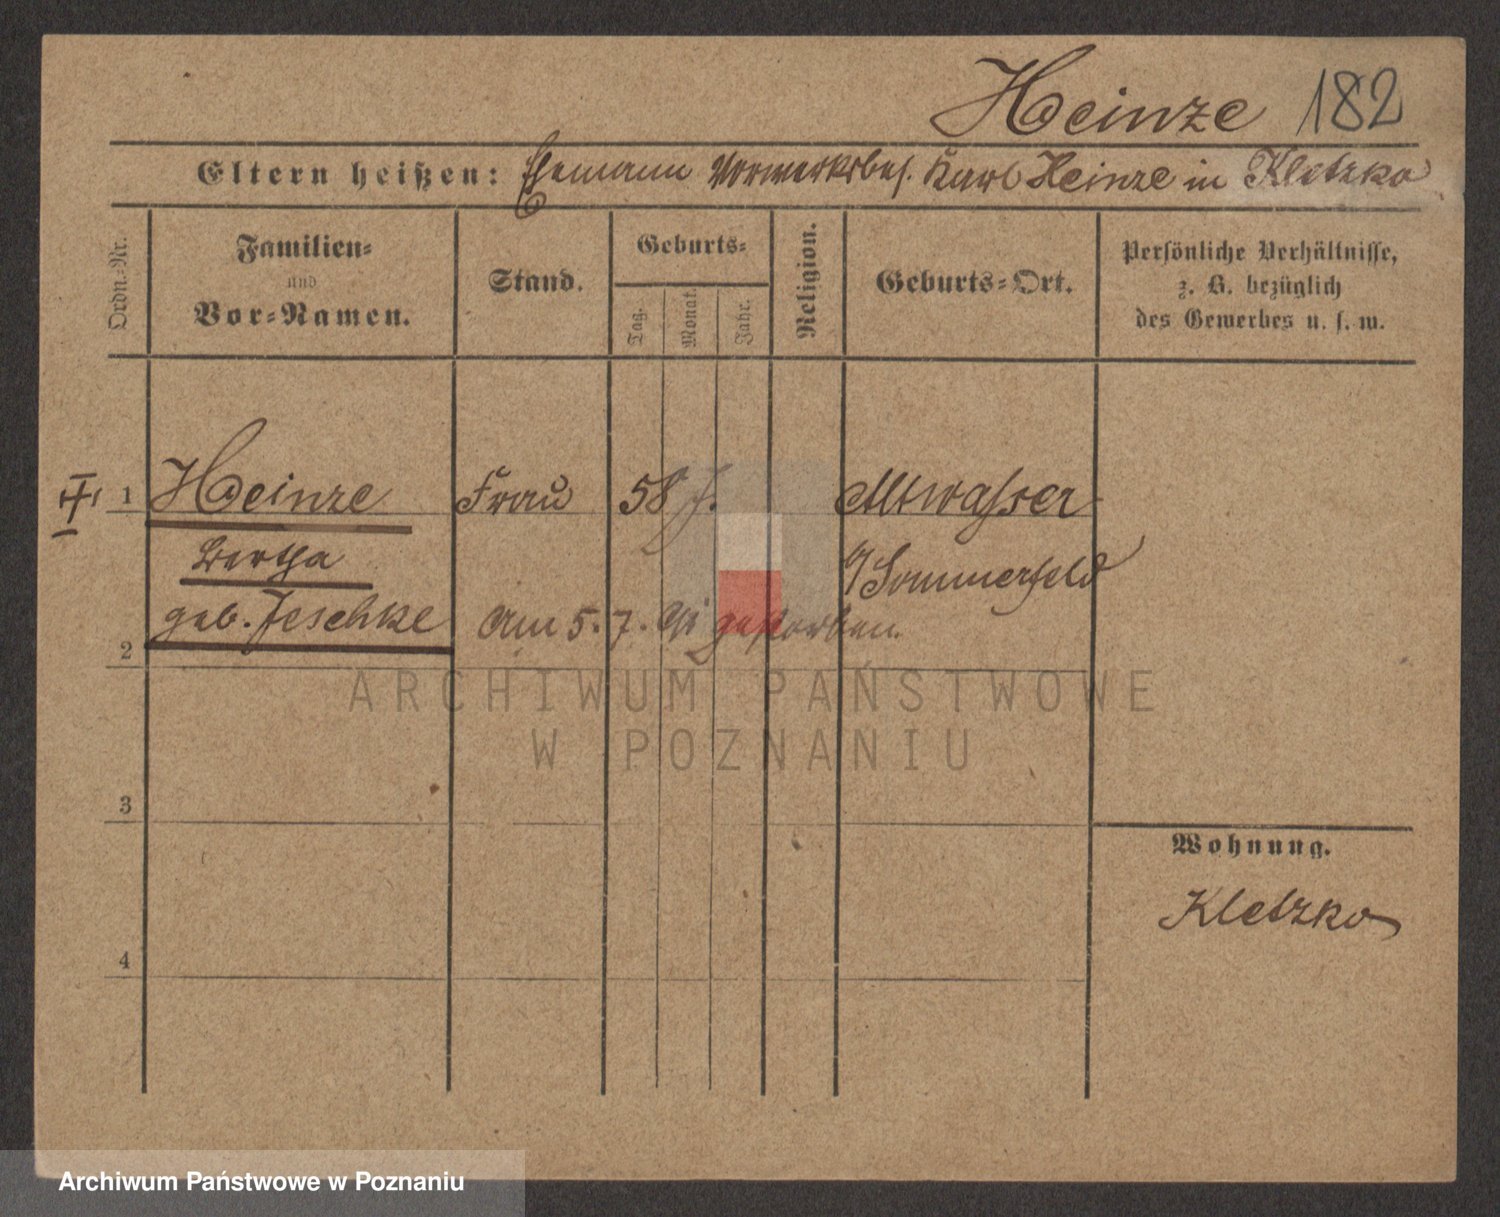 Heinze 182
Eltern heißen: Ehemann Vorwerksbes. Karl Heinze in Kletzko
Ordn.-Nr.
Familien-
und
Vor-Namen.
Stand.
Geburts-
Tag.
Monat.
Jahr.
Religion.
Geburts-Ort.
Persönliche Verhältnisse,
z. B. bezüglich
des Gewerbes u. s. w.
1 Heinze Frau 58 J. Altwasser
Bertha Sommerfeld
geb. Jeschke Am 5. 7. gestorben.
2
ARCHIWUM PAŃSTWOWE
W POZNANIU
3
Wohnung.
Kletzko
4
Archiwum Państwowe w Poznaniu